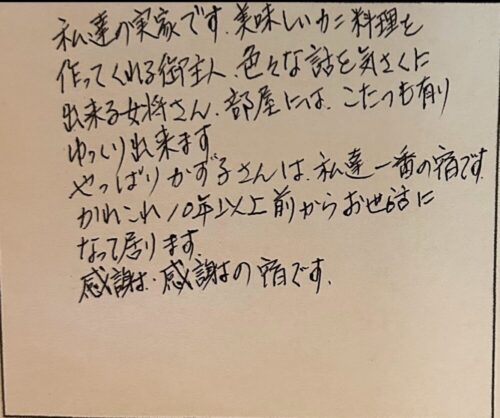 私達の実家です.美味しいカニ料理を
作ってくれる御主人、色々な話を気さくに
出来る女将さん、部屋には、こたつも有り
ゆっくり出来ます
やっぱりかず子さんは、私達一番の宿です.
かれこれ10年以上前からお世話に
なって居ります
感謝、感謝の宿です.